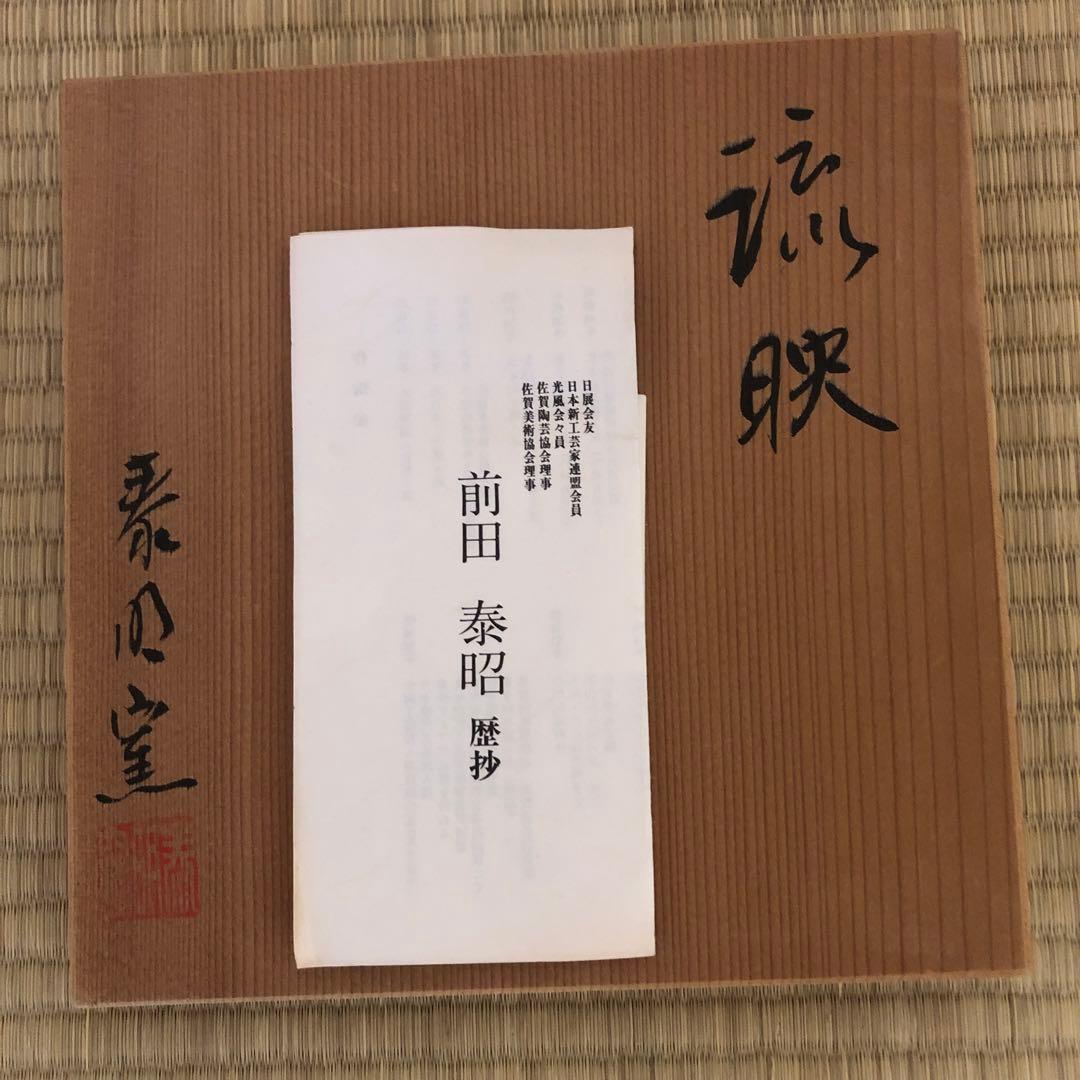 琉映
日展会友
日本新工芸家連盟会員
光風会々員
佐賀陶芸協会理事
佐賀美術協会理事
前田 泰昭 歴抄
泰明窯